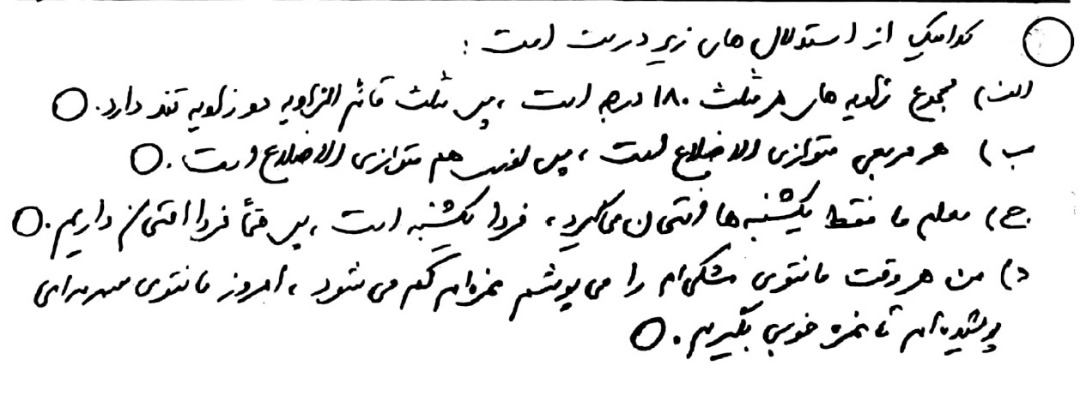 کدامیک از استدلال های زیر درست است :
الف) مجموع زاویه های هر مثلث ۱۸۰ درجه است ، پس مثلث قائم الزاویه دو زاویه تند دارد.
ب) هر مربعی متوازی الاضلاع است ، پس لوزی هم متوازی الاضلاع است .
ج) معلم ما فقط یکشنبه ها امتحان می گیرد ، فردا یکشنبه است ، پس حتماً فردا امتحان داریم.
د) من هر وقت مانتوی مشکی ام را می پوشم نمره ام کم می شود ، امروز مانتوی سرمه ای
پوشیده ام تا نمره خوبی بگیرم .